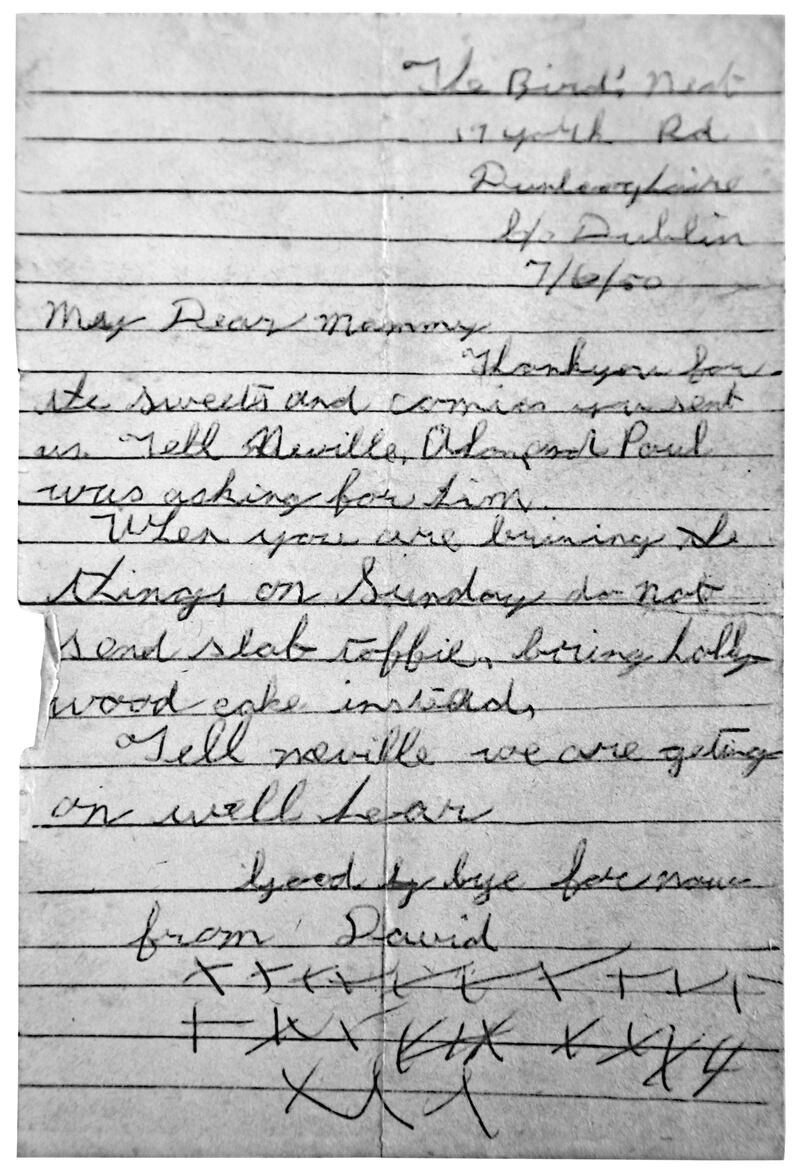 The Bird's Nest
19 York Rd
Dunlaoghaire
Co Dublin
7/6/50
My Dear Mammy
Thankyou for
the sweets and comics you sent
us. Tell Neville, and Paul
was asking for him.
When you are brining the
things on Sunday do not
send slab toffie, bring holly
wood cake instead,
Tell neville we are geting
on well hear
Good by bye for now
from David
x x x x x x x x x x
x x x x x x x x x x
x x x